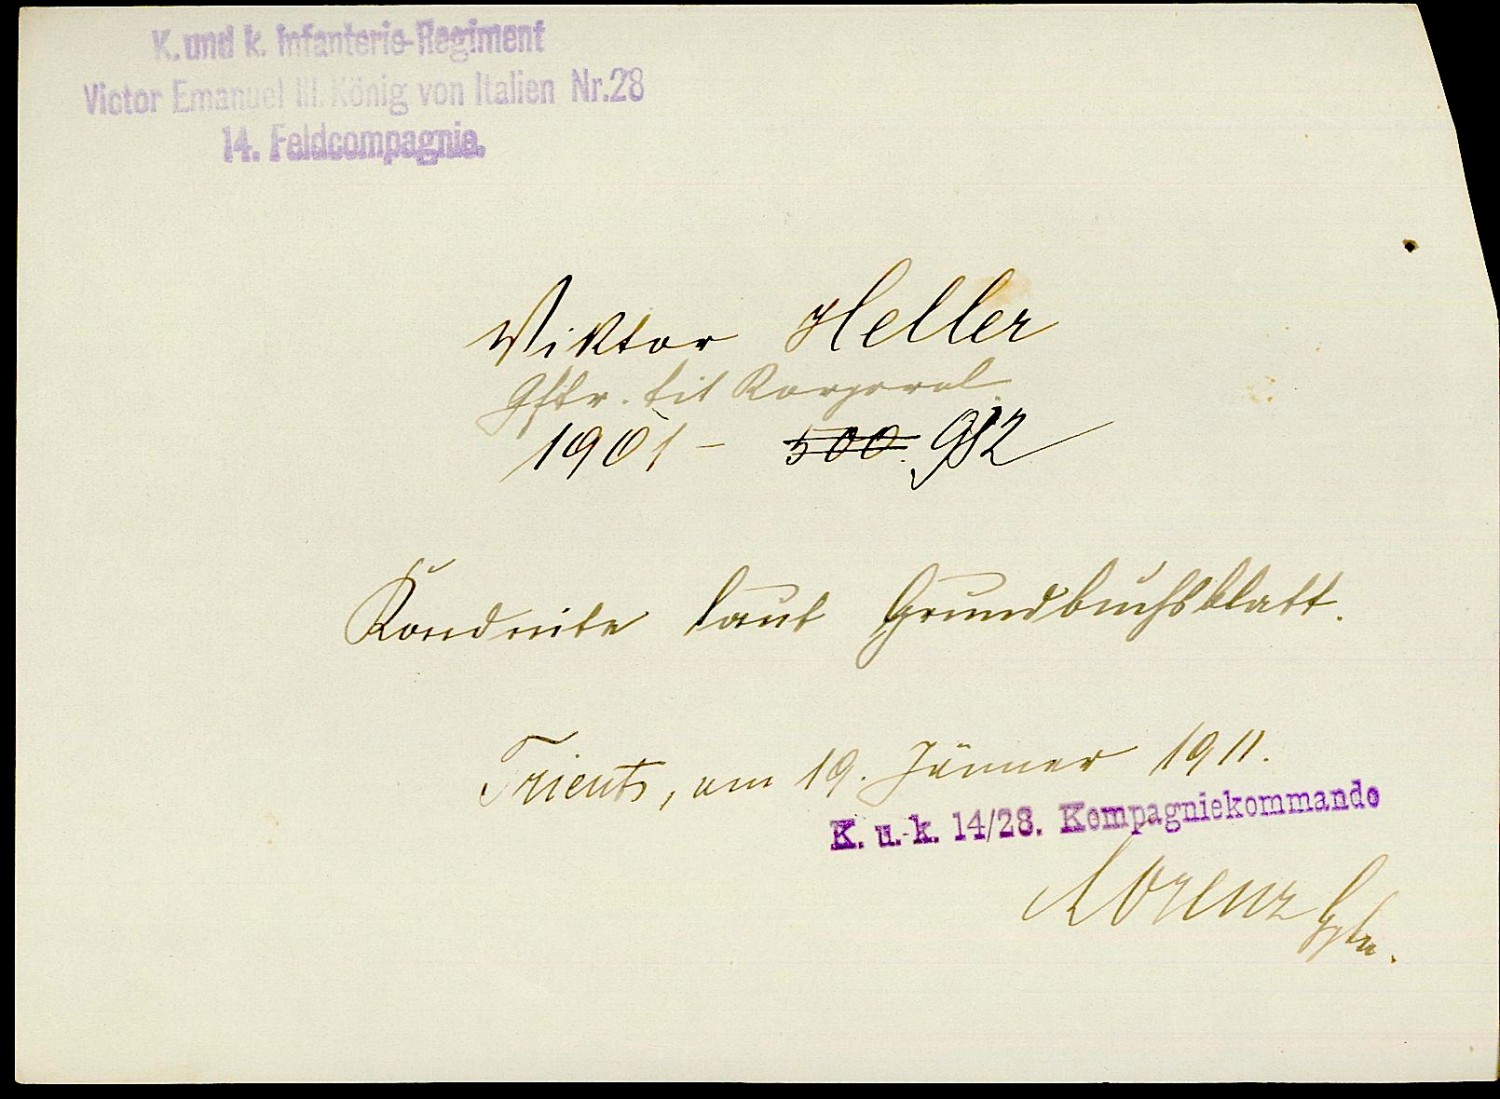 K. und k. Infanterie-Regiment
Victor Emanuel III. König von Italien Nr. 28
14. Feldcompagnie.
Viktor Heller
Gftr. tit Korporal
1901 - 500. 982
Konduite laut Grundbuchsblatt.
Trient, am 19. Jänner 1911.
K. u. k. 14/28. Kompagniekommando
Lorenz Hptm.